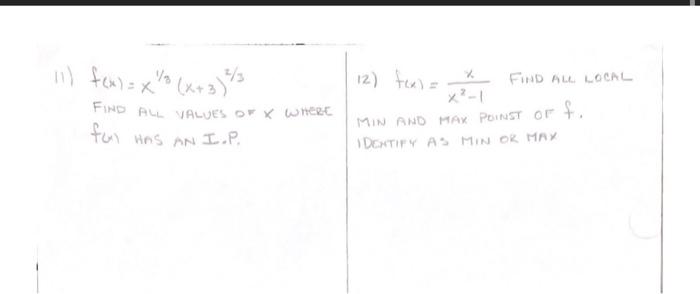 11) f(x) = x^1/3 (x+3)^2/3
FIND ALL VALUES OF X WHERE
f(x) HAS AN I.P.
12) f(x) = x/(x²-1) FIND ALL LOCAL
MIN AND MAX POINST OF f.
IDENTIFY AS MIN OR MAX